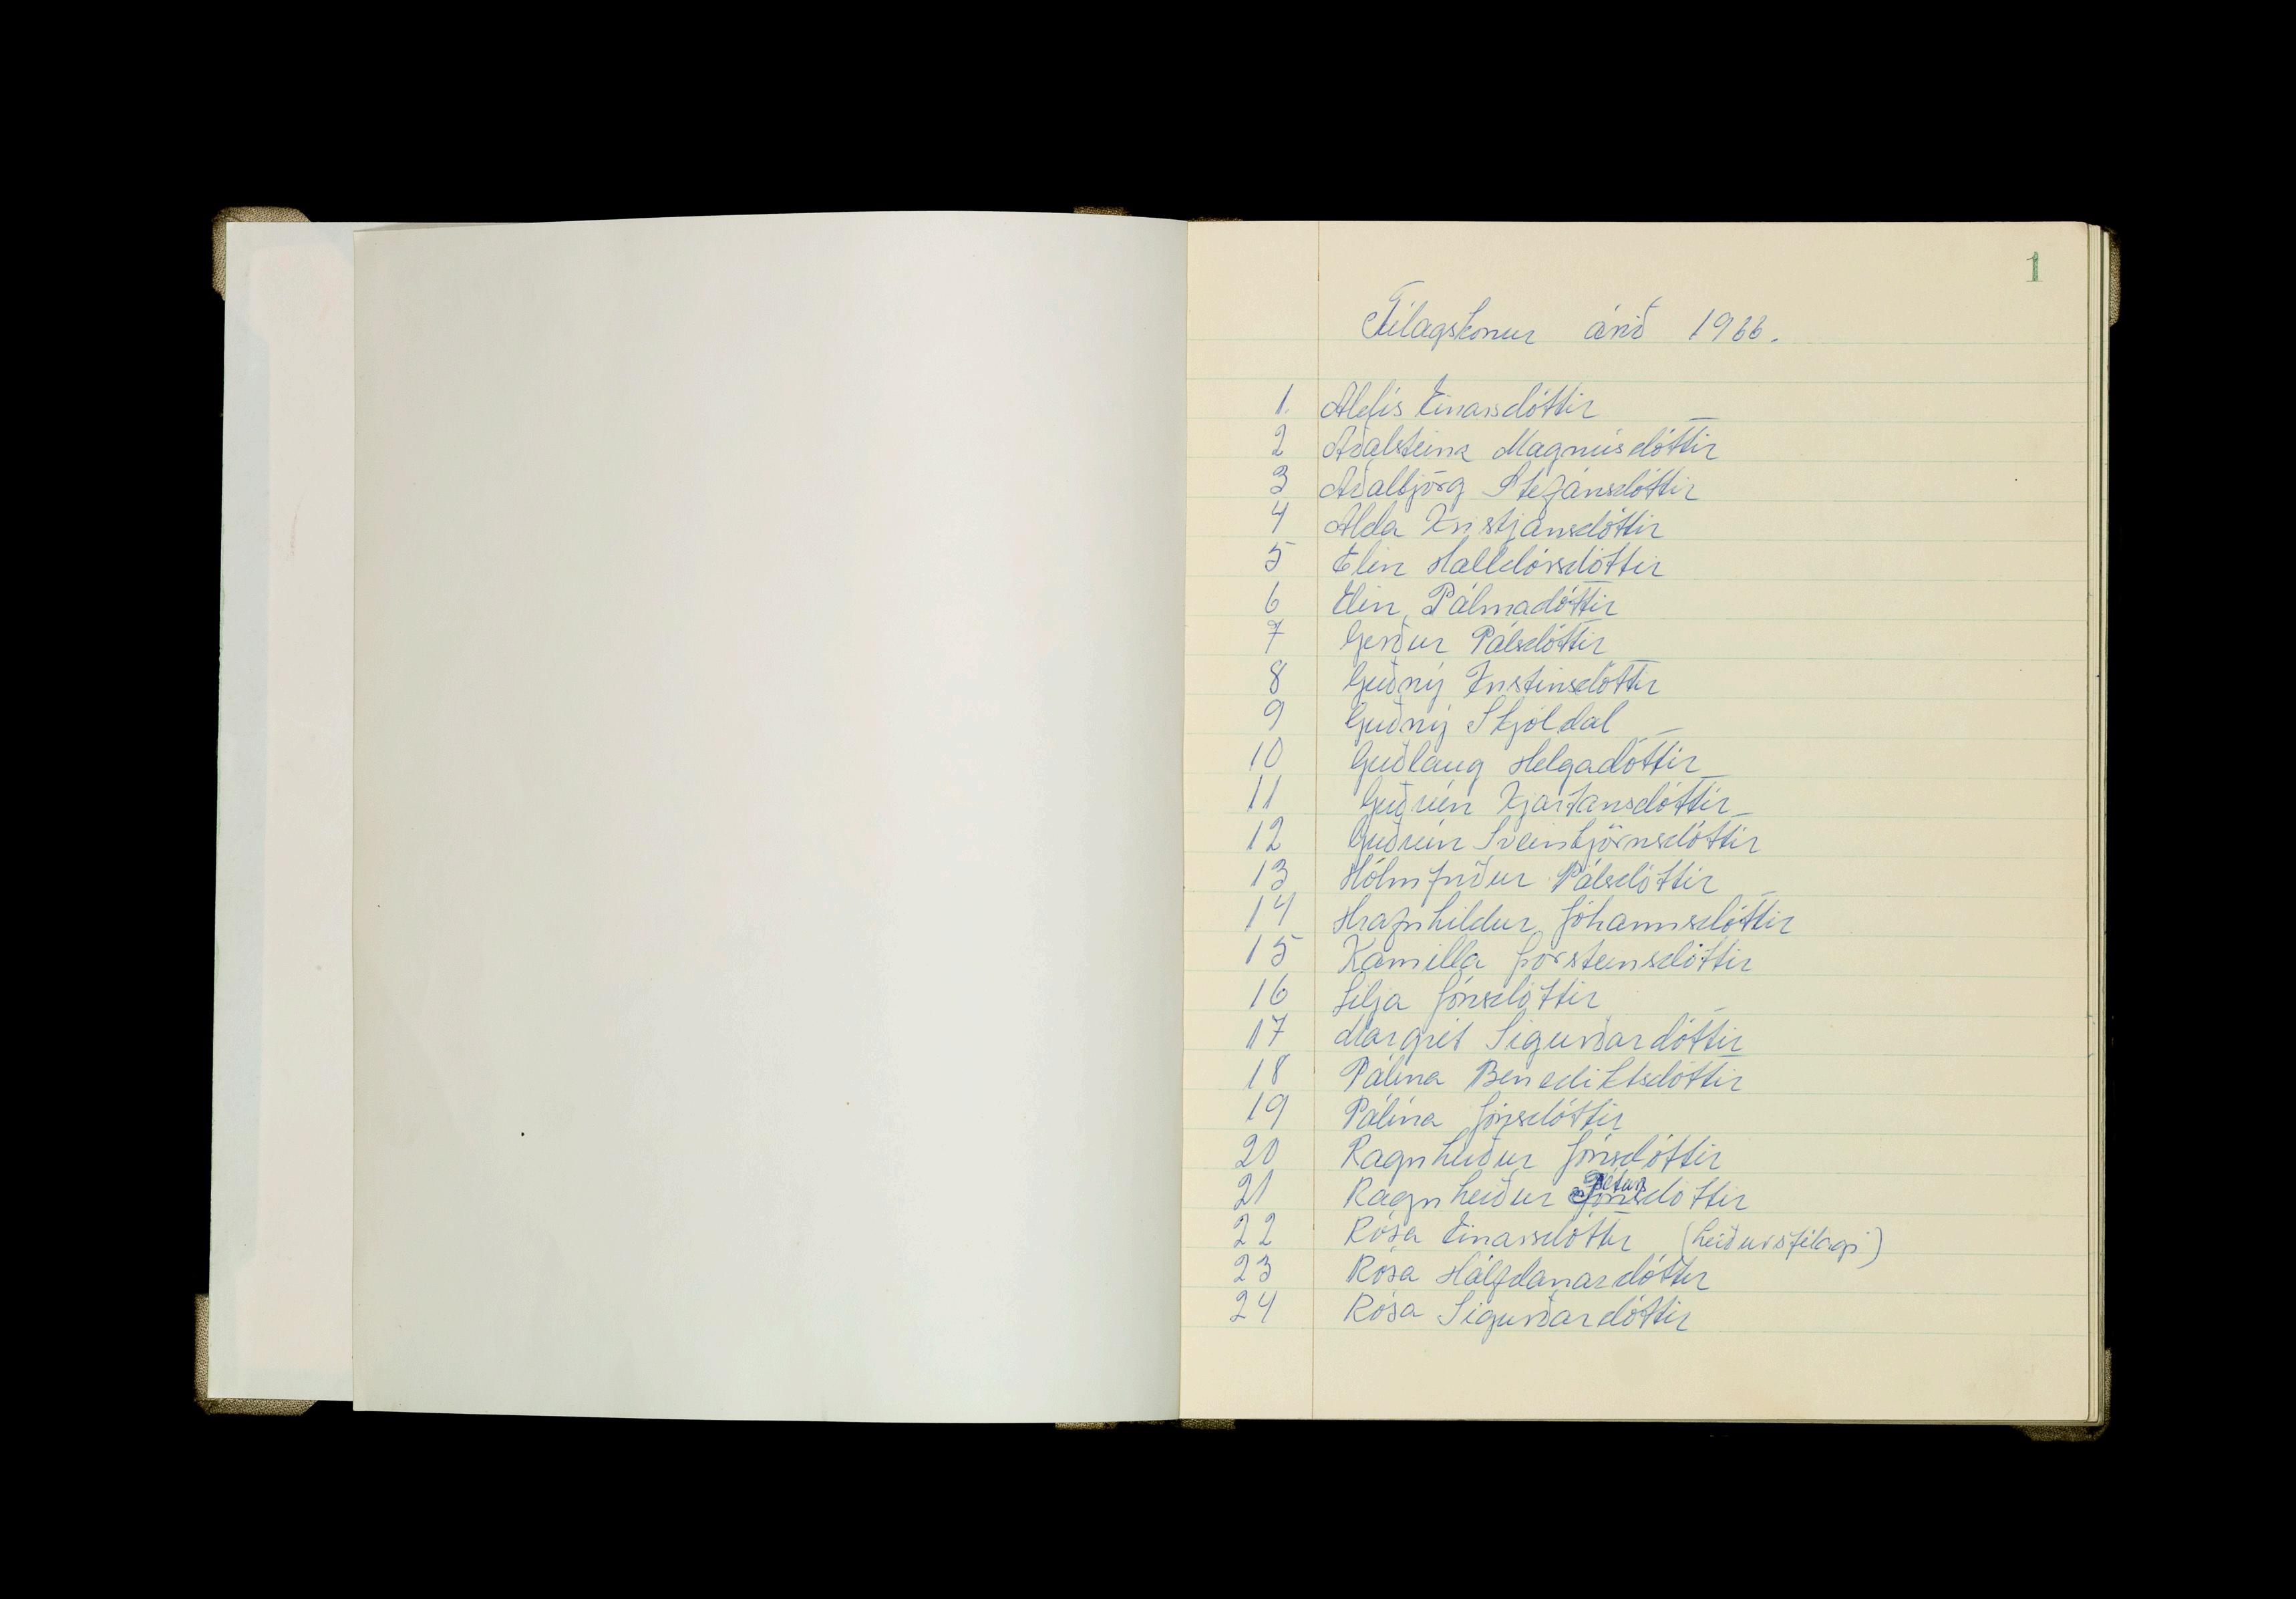 1
Félagskonur árið 1966.
1. Aldís Einarsdóttir
2 Aðalsteina Magnúsdóttir
3 Aðalbjörg Stefánsdóttir
4 Alda Kristjánsdóttir
5 Elín Halldórsdóttir
6 Elín Pálmadóttir
7 Gerður Pálsdóttir
8 Guðný Kristinsdóttir
9 Guðný Skjóldal
10 Guðlaug Helgadóttir
11 Guðrún Kjartansdóttir
12 Guðrún Sveinbjörnsdóttir
13 Hólmfríður Pálsdóttir
14 Hrafnhildur Jóhannsdóttir
15 Kamilla Þorsteinsdóttir
16 Lilja Jónsdóttir
17 Margrét Sigurðardóttir
18 Pálína Benediktsdóttir
19 Pálína Jónsdóttir
20 Ragnheiður Jónsdóttir
21 Ragnheiður Pétursdóttir
22 Rósa Einarsdóttir (heiðursfélagi)
23 Rósa Hálfdanardóttir
24 Rósa Sigurðardóttir